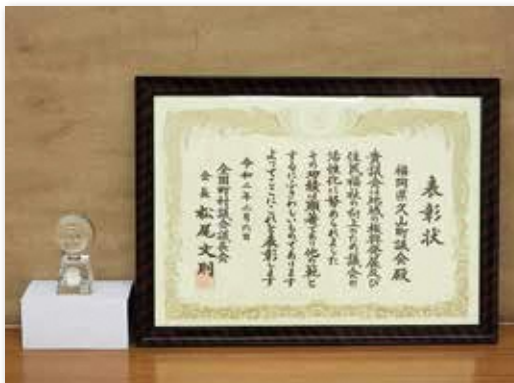 表彰状
福岡県久山町議会殿
貴議会は地域の振興発展及び
住民福祉の向上のため議会の
活性化に努められました
その功績は顕著であり他の範と
するにふさわしいものであります
よってここにこれを表彰します
令和二年二月六日
全国町村議会議長会
会長 松尾文則